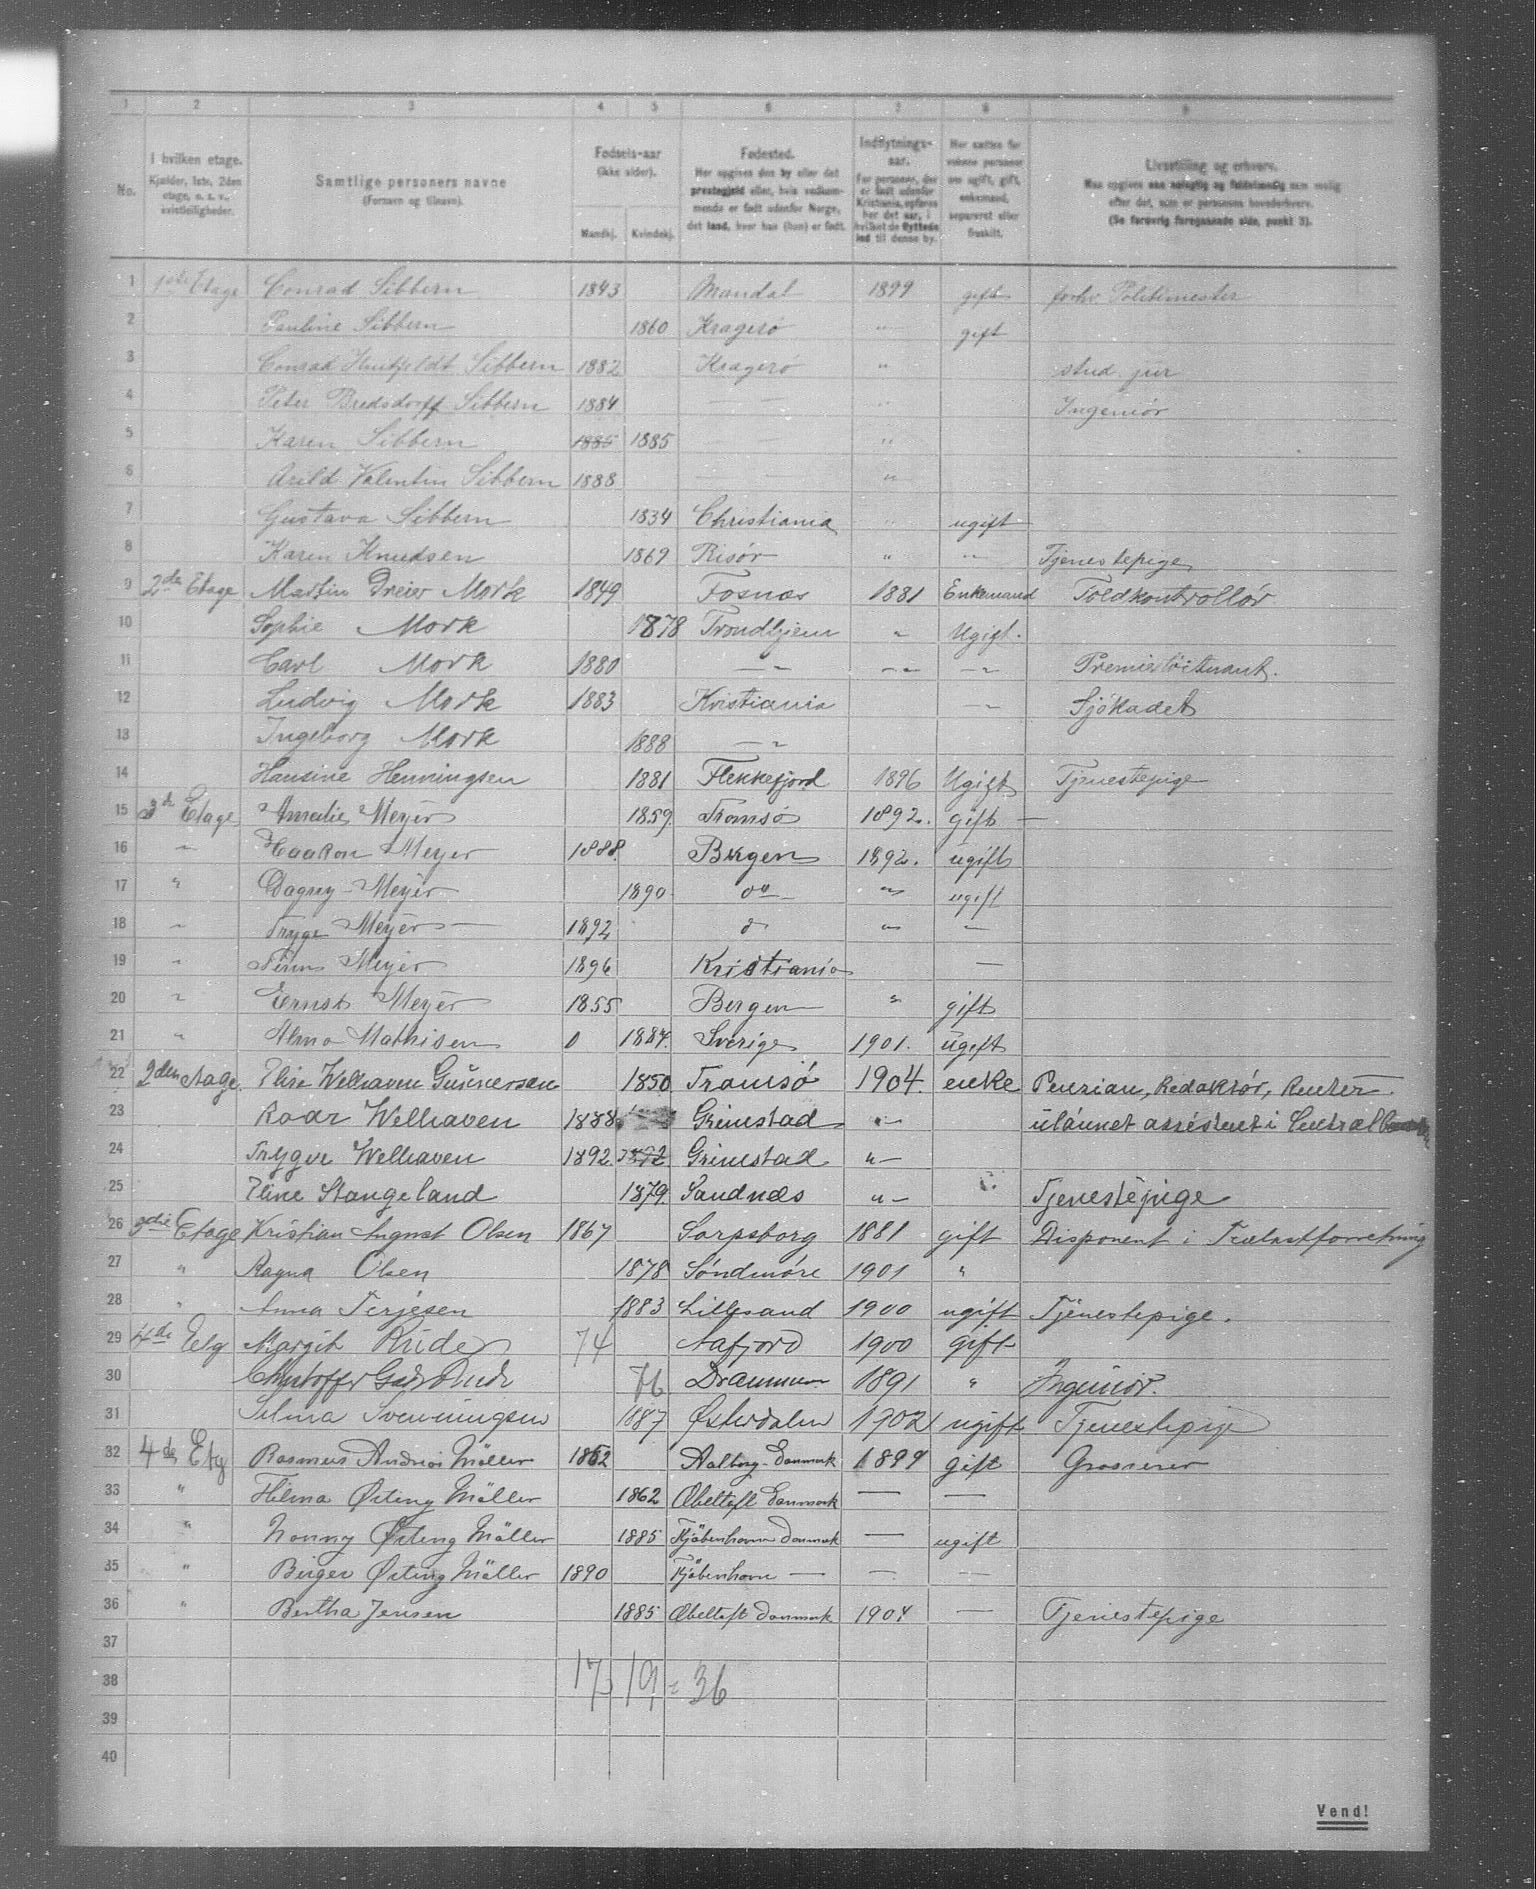 1 2 3 4 5 6 7 8 9
No.
I hvilken etage. Kjælder, 1ste, 2den etage, o. s. v., kvistleiligheder.
Samtlige personers navne (Fornavn og tilnavn).
Fødsels-aar (ikke alder). Mandkj. Kvindekj.
Fødested. Her opgives den by eller det præstegjeld eller, hvis vedkommende er født udenfor Norge, det land, hvor han (hun) er født.
Indflytnings-aar. For personer, der er født udenfor Kristiania, opføres her det aar, i hvilket de flyttede ind til denne by.
Her sættes for voksne personer om ugift, gift, enkemand, separeret eller fraskilt.
Livsstilling og erhverv. Maa opgives saa nøiagtig og fuldstændig som mulig efter det, som er personens hovederhverv. (Se forøvrig foregaaende side, punkt 5).
1 1ste Etage Conrad Sibbern 1843 Mandal 1899 gift forhv. Politimester
2 Pauline Sibbern 1860 Kragerö " gift
3 Conrad Huitfeldt Sibbern 1882 Kragerö " stud. jur
4 Peter Bredsdorff Sibbern 1884 — — " Ingeniör
5 Karen Sibbern 1885 1885 — "
6 Arild Valentin Sibbern 1888 — "
7 Gustava Sibbern 1834 Christiania " ugift
8 Karen Knudsen 1869 Risör " " Tjenestepige
9 2de Etage Martin Dreier Mork 1849 Fosnæs 1881 Enkemand Toldkontrollør
10 Sophie Mork 1878 Trondhjem " Ugift.
11 Carl Mork 1880 — " — " — " Premierløitnant.
12 Ludvig Mork 1883 Kristiania — " Sjökadet
13 Ingeborg Mork 1888 — "
14 Hansine Henningsen 1881 Flekkefjord 1896 Ugift Tjenestepige
15 3de Etage Amalie Meyer 1859. Tromsö 1892. gift —
16 " Haakon Meyer 1888. Bergen 1892. ugift
17 " Dagny Meyer 1890 do — " ugift
18 " Trygve Meyer 1892 d " "
19 " Finn Meyer 1896 Kristiania —
20 " Ernst Meyer 1855 Bergen " gift
21 " Alma Mathisen 0 1884. Sverige 1901. ugift
22 2den etage. Elise Welhaven Gunnersen 1850 Tromsö 1904. enke Pension, Redaktør, Renter
23 Roar Welhaven 1888 Grimstad " — ulønnet assistent i Centralbanken
24 Trygve Welhaven 1892 1892 Grimstad " —
25 Eline Stangeland 1879. Sandnæs " — Tjenestepige
26 3die Etage Kristian August Olsen 1867 Sarpsborg 1881 gift Disponent i Trælastforretning
27 " Ragna Olsen 1878 Söndmöre 1901 "
28 " Anna Terjesen 1883 Lillesand 1900 ugift Tjenestepige.
29 4de Etg Margit Rude 74 Aafjord 1900 gift
30 Christoffer Rude 76 Drammen 1891 " Ingeniör.
31 Selma Svenningsen 1887 Østerdalen 1902 ugift Tjenestepige
32 4de Etg Rasmus Andreas Möller 1862 Aalborg Danmark 1899 gift Grosserer
33 " Hilma Østing Möller 1862 Æbeltoft Danmark — —
34 " Nonny Østing Möller 1885 Kjöbenhavn Danmark — ugift
35 " Birger Østing Möller 1890 Kjöbenhavn — — —
36 " Bertha Jensen 1885 Æbeltoft Danmark 1904 — Tjenestepige
37
38 17 19 = 36
39
40
Vend!